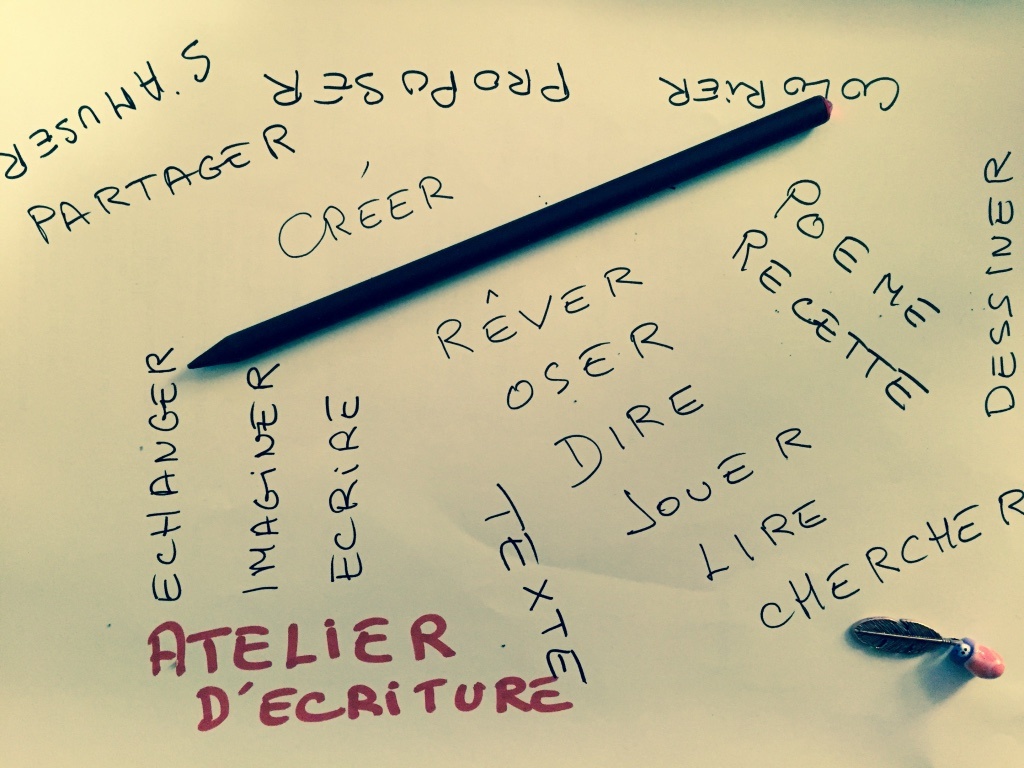 S'AMUSER
PROPOSER
COLORIER
PARTAGER
CRÉER
POEME
RECETTE
DESSINER
RÊVER
OSER
DIRE
JOUER
LIRE
CHERCHER
ECHANGER
IMAGINER
ECRIRE
TEXTE
ATELIER
D'ECRITURE